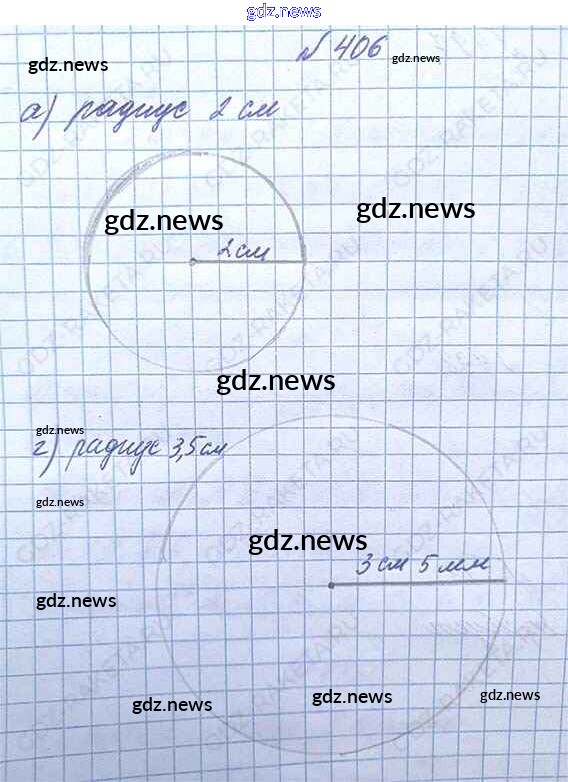 gdz.news
№ 406
gdz.news
gdz.news
а) радиус 2 см
gdz.news
gdz.news
2 см
gdz.news
gdz.news
г) радиус 3,5 см
gdz.news
gdz.news
3 см 5 мм
gdz.news
gdz.news
gdz.news
gdz.news
GDZ-RAKETA.RU